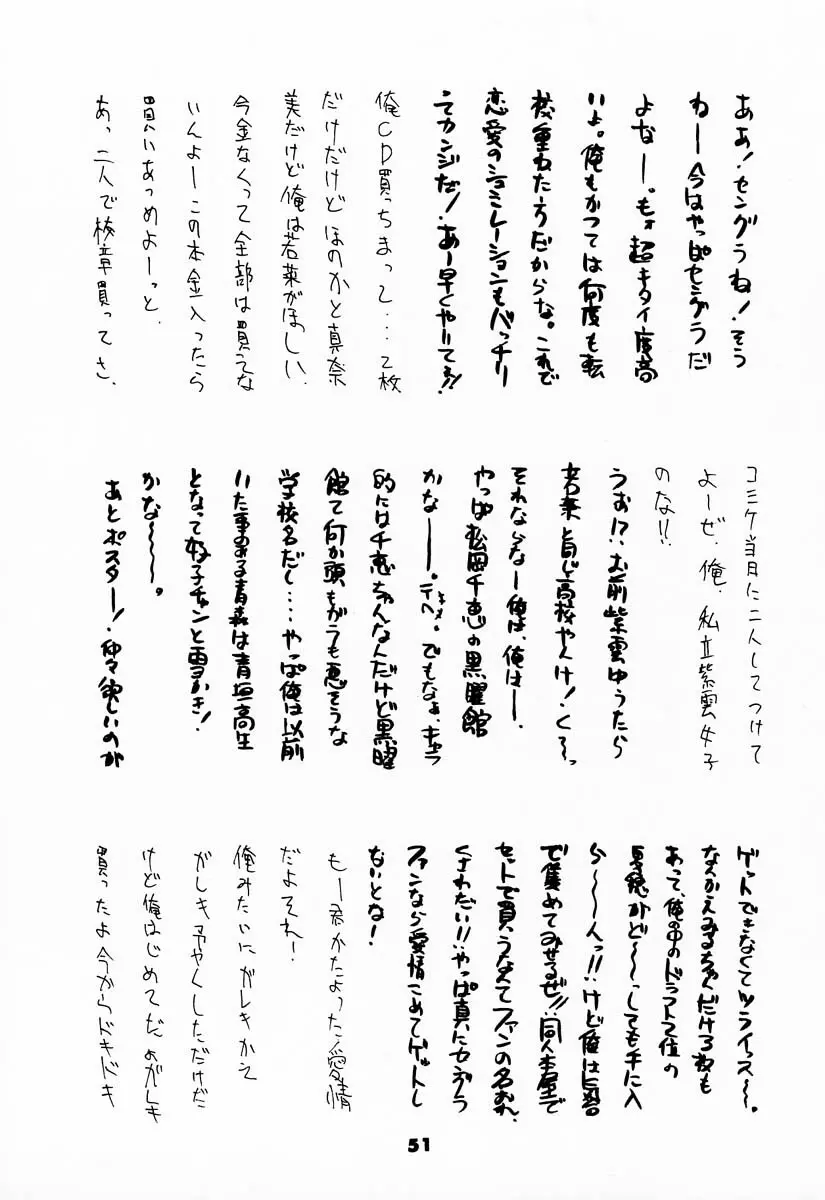 ああ!セングラね!そう
ねー今はやっぱセングラだ
よなー。もォ超キタイ度高
いよ。俺もかつては何度も転
校重ねた方だからな。これで
恋愛のシミュレーションもバッチリ
てカンジだ!あー早くやりてぇ!
俺CD買っちまって…2枚
だけだけどほのかと真奈
美だけど俺は若菜がほしい、
今金なくって全部は買えな
いんよーこの本金入ったら
買いあつめよーっと、
あっ二人で校章買ってさ、
コミケ当日に二人してつけて
よーぜ、俺、私立紫雲女子
のな!!
うお!?お前紫雲ゆうたら
若菜と同じ高校やんけ!く〜っ
それならなー俺は、俺はー、
やっぱ松岡千恵の黒曜館
かなー。テヘ。でもなぁ、キャラ
的には千恵ちゃんなんだけど黒曜
館て何か頭もがらも悪そうな
学校名だし…やっぱ俺は以前
いた事のある青森は青垣高生
となって妙子チャンと雪かき!
かな〜〜。
あとポスター!仲々欲しいのが
ゲットできなくてツライっス〜。
なんかえみるちゃんだけ3枚も
あって、俺の中のドラフト2位の
夏穂がど〜〜っしても手に入
ら〜〜んっ!!けど俺は自習
で集めてみせるぜ!!同人本屋で
セットで買うなんてファンの名おれ、
くさわたい!!やっぱ真にセングラ
ファンなら愛情こめてゲットし
ないとな!
もー君かたよった愛情
だよそれー!
俺みたいにガレキかえ
ガレキ予やくしただけだ
けど俺はじめてだよガレキ
買ったよ今からドキドキ
51